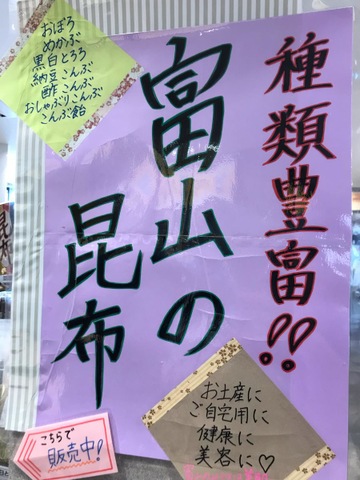 種類豊富!!
富山の
昆布
おぼろ
めかぶ
黒白とろろ
納豆こんぶ
酢こんぶ
おしゃぶりこんぶ
こんぶ飴
お土産に
ご自宅用に
健康に
美容に♡
こちらで
販売中!